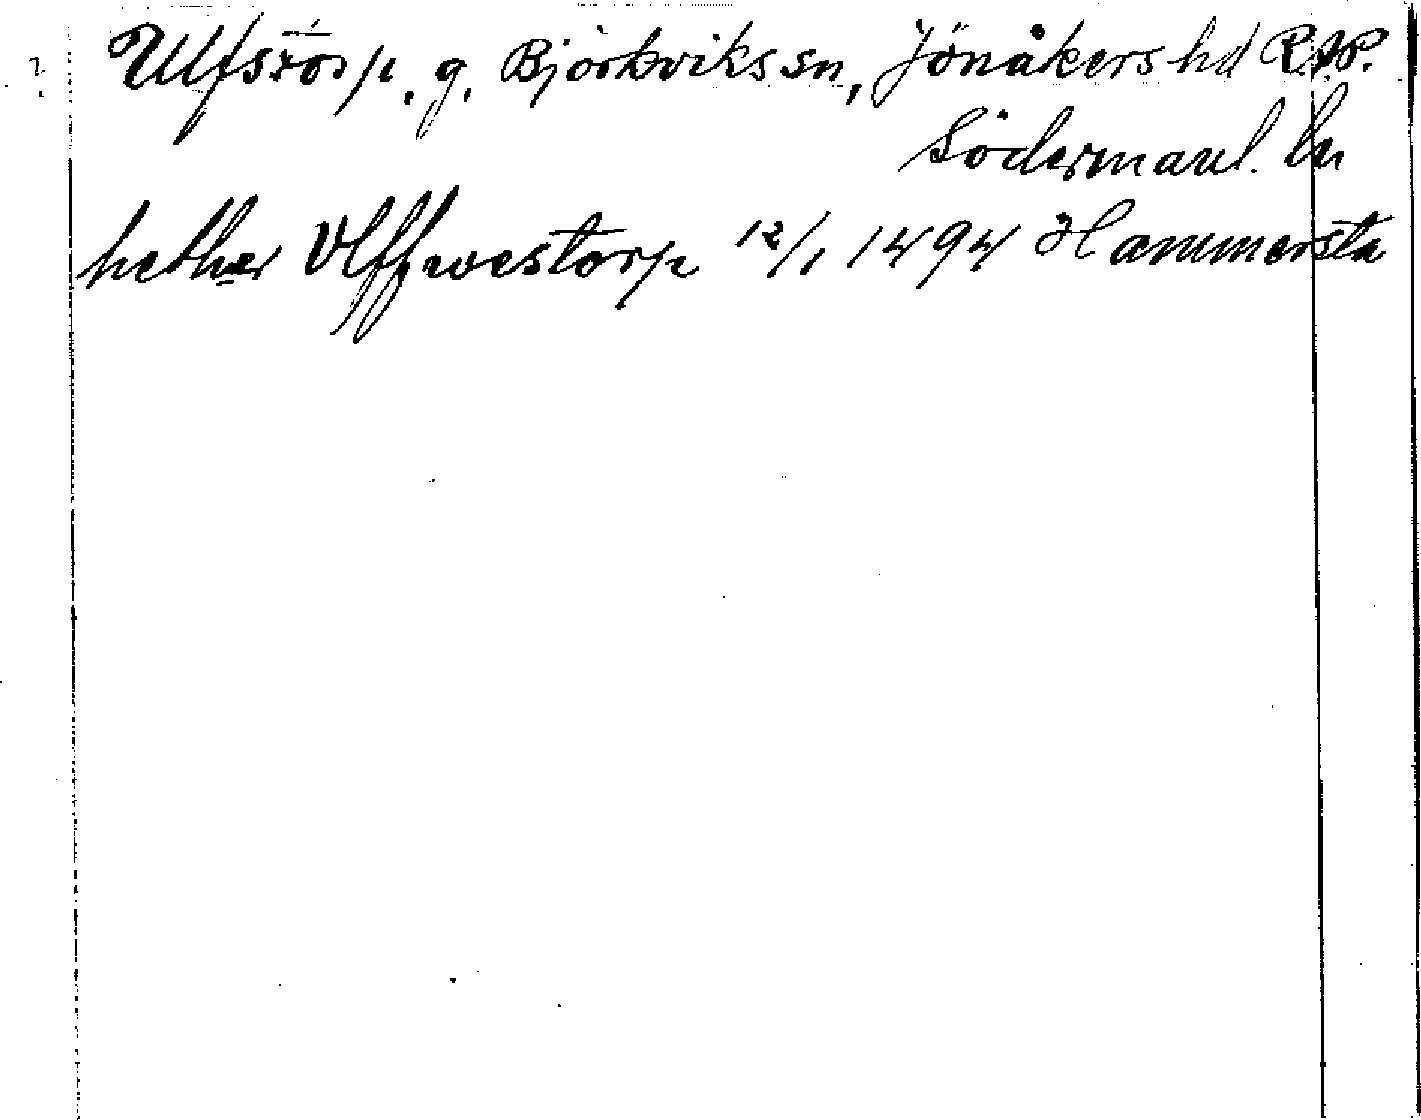 Ulfstorp, g. Björkviks sn, Jönåkers hd R.A.P.
Södermanl. ln
hether Vlffwestorp 12/1 1494 Hammersta